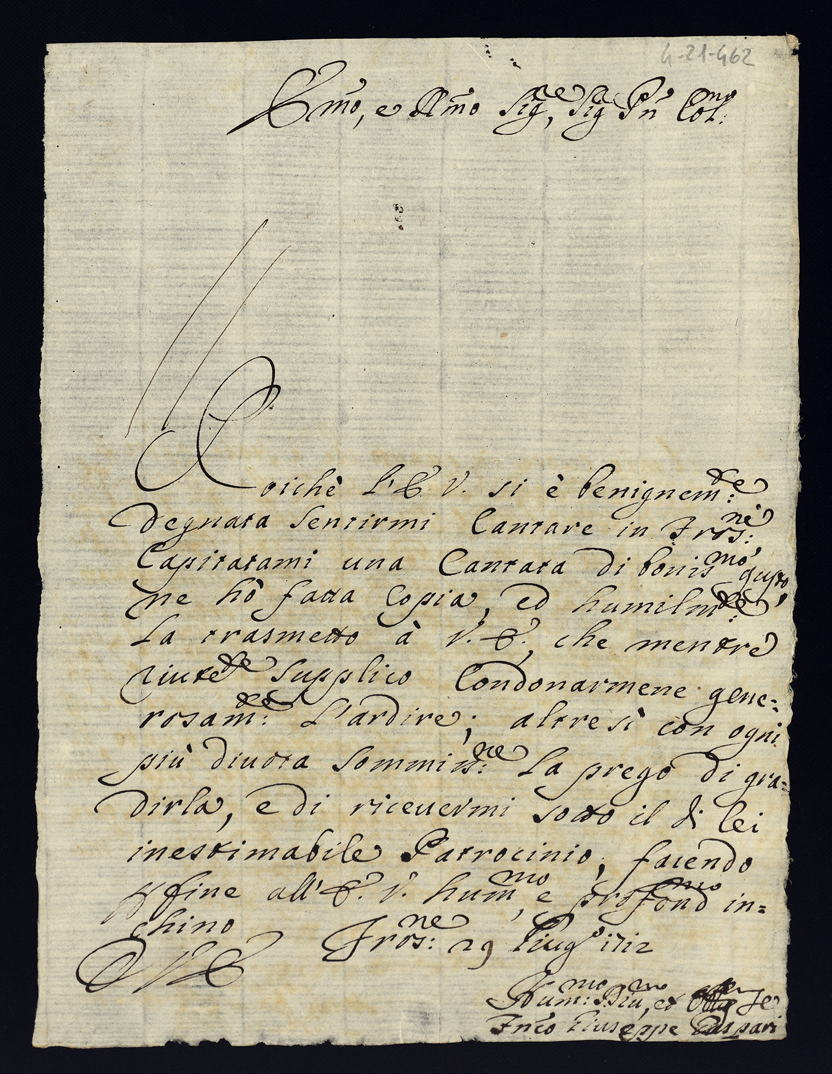 4-21-462
Emo, e Rmo Sigre, Sig Pn Colmo:
Poichè L'E V. si è benignemte:
degnata sentirmi Cantare in Frosne:
Capitatami una Cantata di bonismo gusto,
ne hò fatta Copia, ed humilmte
La trasmetto à V. E., che mentre
riuete supplico Condonarmene gene-
rosamte: L'ardire; altresì con ogni
più diuota sommisne: La prego di gra-
dirla, e di riceuermi sotto il di lei
inestimabile Patrocinio; facendo
fine all'E. V. hummo, e profondmo in-
chino Frosne: 29 Giugo 1712
Hummo: Diumo, et
Giuseppe Gaspari